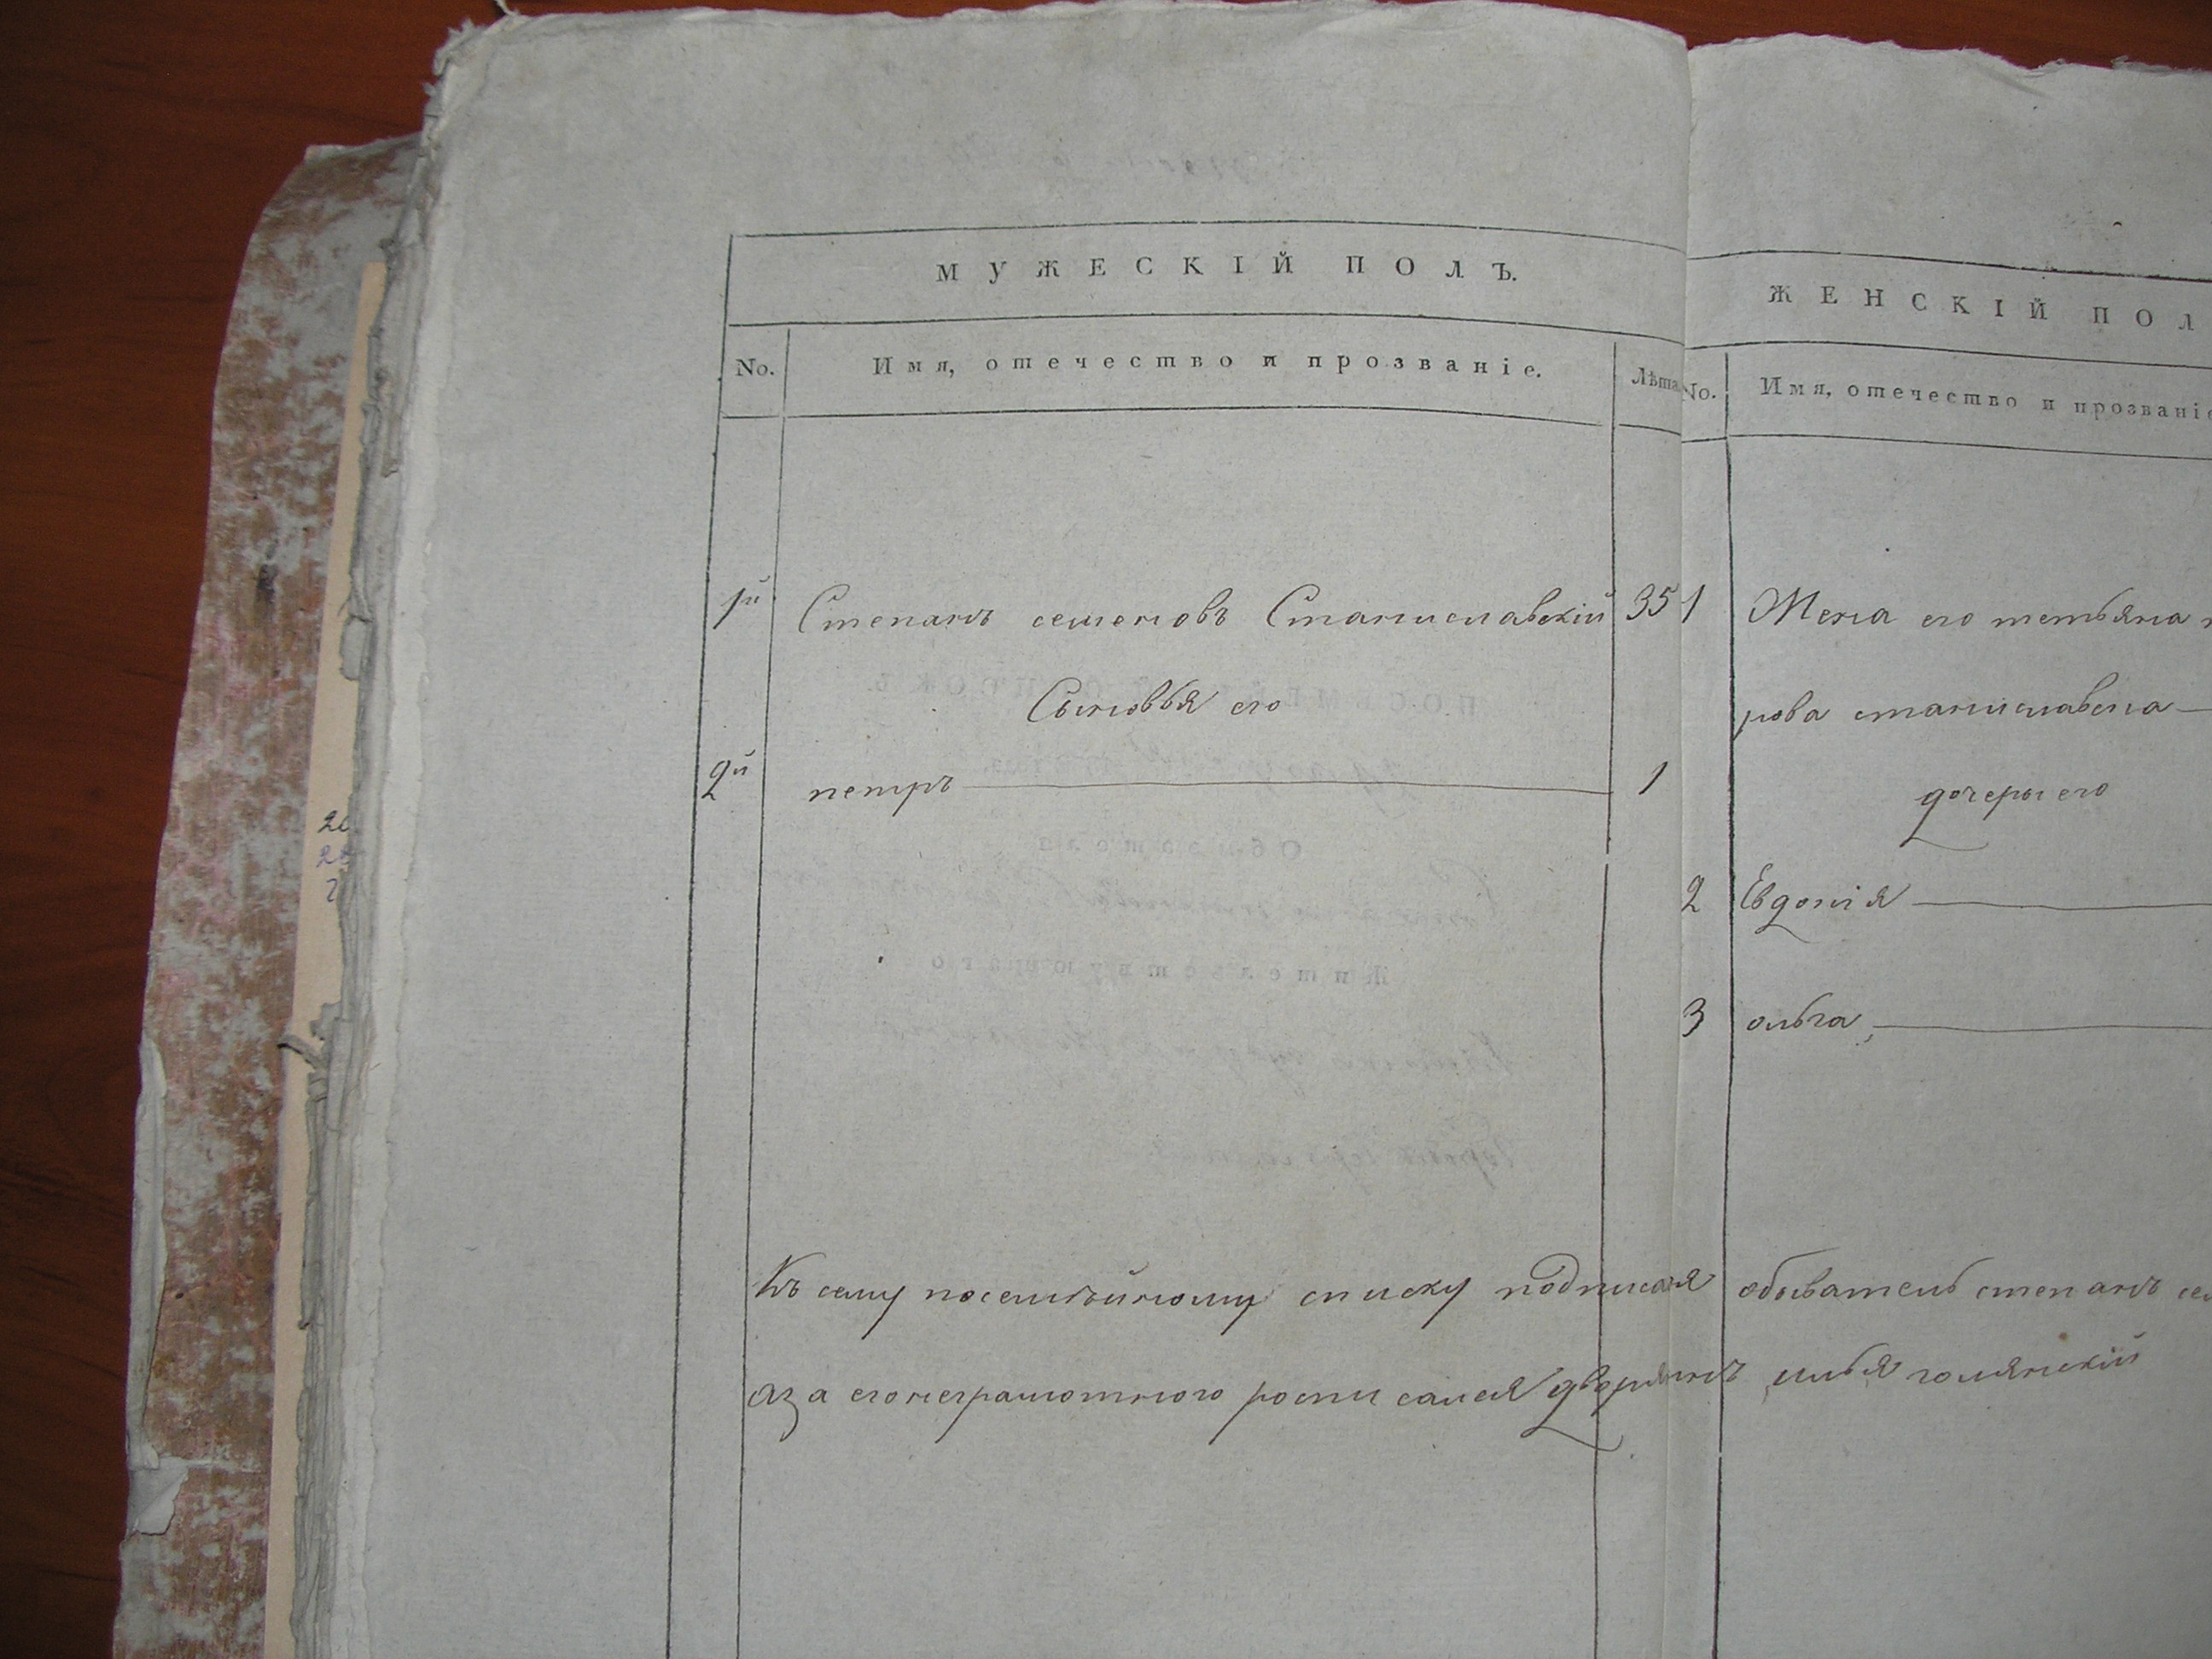 МУЖЕСКІЙ ПОЛЪ.
No. Имя, отечество и прозваніе. Лѣта
1й Степанъ семеновъ Станиславскій 35
Сыновья его
2й петръ 1
ЖЕНСКІЙ ПОЛ
No. Имя, отечество и прозваніе
1 Жена его тетьяна
рова станиславска
дочеры его
2 Евдокія
3 ольга
Къ сему посемейному списку подписался обыватель степанъ се
аза его неграмотного росписался дворянинъ илья голянскій